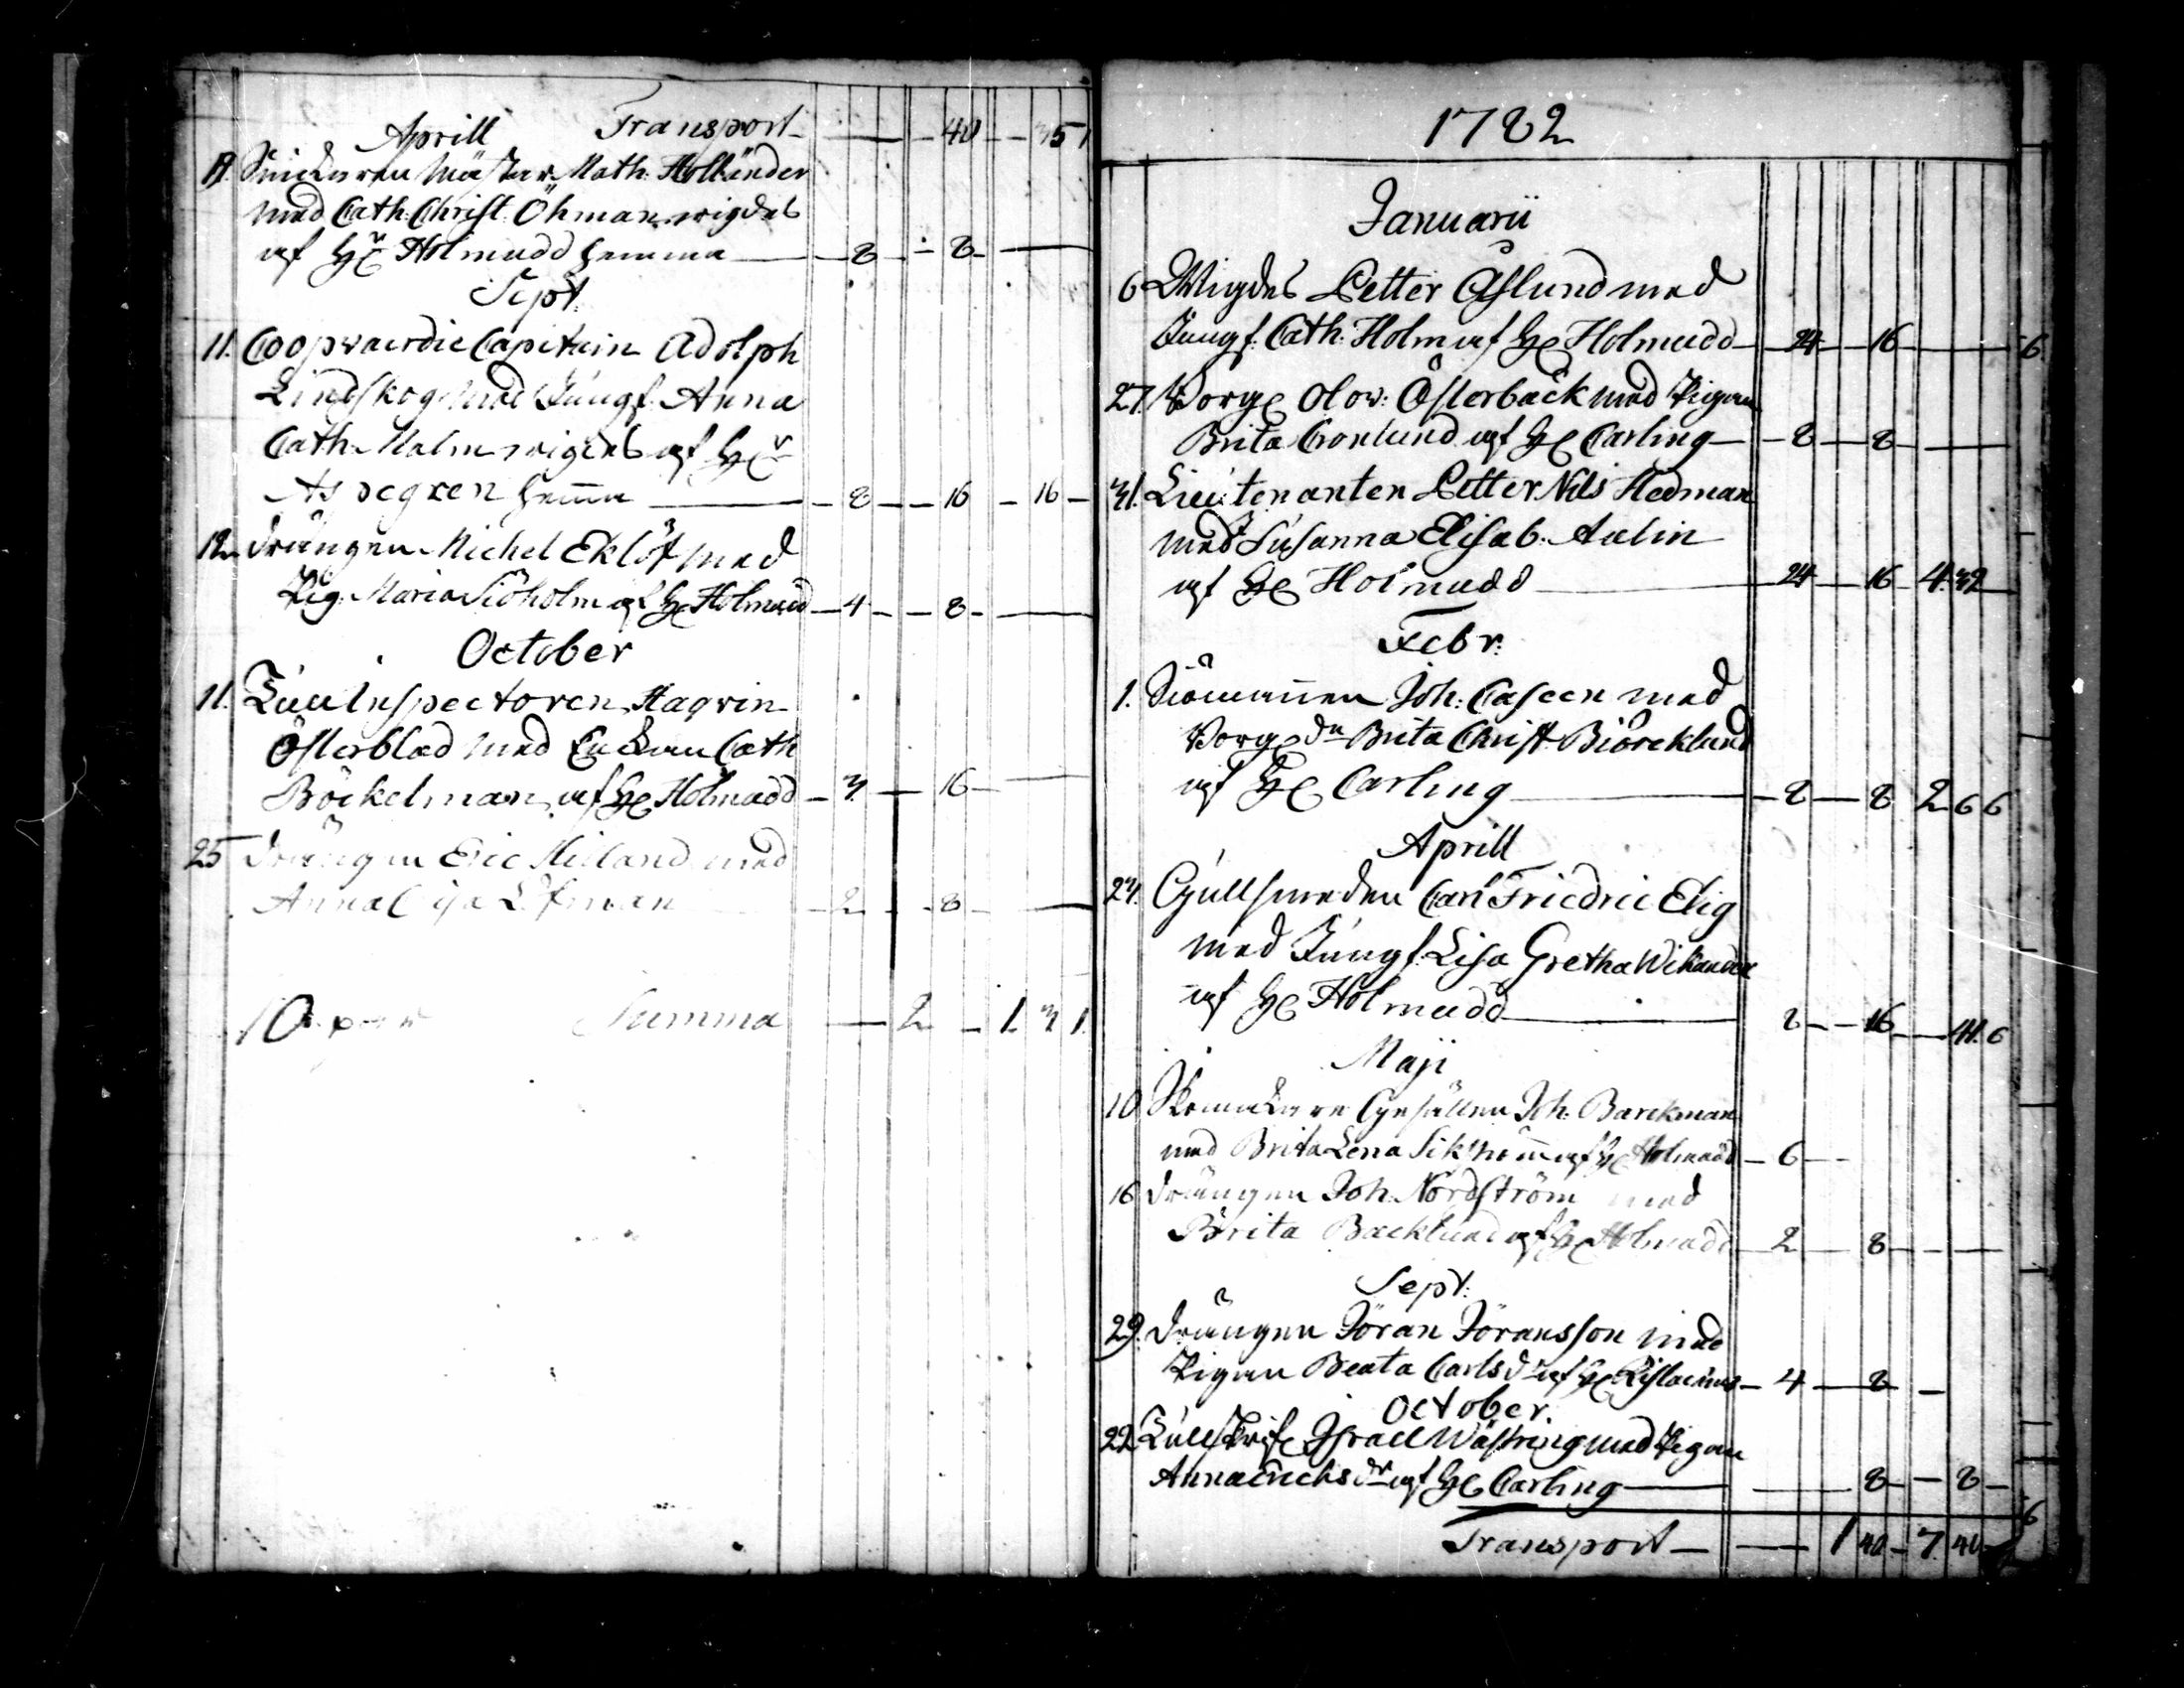 Aprill Transport — 40 — 35 1
Snickaren Mäster Math: Holländer
med Cath: Christ: Öhman wigdes
af Hr Holmudd hemma — 8 — 8 —
Sept:
11. Coopvaerdie Capitain Adolph
Lindskog med Jungf: Anna
Cath: Malm wigdes af Hr
Aspegren hema — 8 — 16 — 16 —
12. drängen Michel Eklöf med
Pig: Maria Siöholm af Hr Holmudd — 4 — 8 —
October
11. Tull Inspectoren Haqvin
Österblad med Enkan Cath
Böckelman af Hr Holmudd — 3. — 16 —
25 drängen Eric Heland med
Anna — 2 — 8 —
10 par Summa — 2 — 1 3 1.
1782
Januarii
6 Wigdes Petter Åslund med
Jungf: Cath: Holm af Hr Holmudd — 24 — 16 — 6
27. Borg: Olow: Österbäck med Pigan
Brita Cronlund af Hr Carling — 8 — 8 —
31. Lieutenanten Petter Nils Hedman
med Susanna Elisab: Aulin
af Hr Holmudd — 24 — 16 4. 32
Febr:
1. Siömannen Joh: Caseen med
Borg: dr Brita Christ: Biörcklund
af Hr Carling — 8 — 8 2 6 6
Aprill
23. Gullsmeden Carl Friedric Elig
med Jungf: Lisa Gretha Wikander
af Hr Holmudd — 8 — 16 — 41. 6
Maji
10 Skomakare Gesällen Joh: Barckman
med Brita Lena af Hr Holmudd — 6 —
16 drängen Joh: Nordström med
Brita Backlund af Hr Holmudd — 2 — 8 —
Sept:
29. drängen Jöran Jöransson med
Pigan Beata Carlsdr af Hr — 4 — 8 —
October.
22. Tullskrif: Israel Wästring med Pigan
Anna Erichsdr af Hr Carling — 8 — 8 —
Transport — 1 40 — 7. 40 6